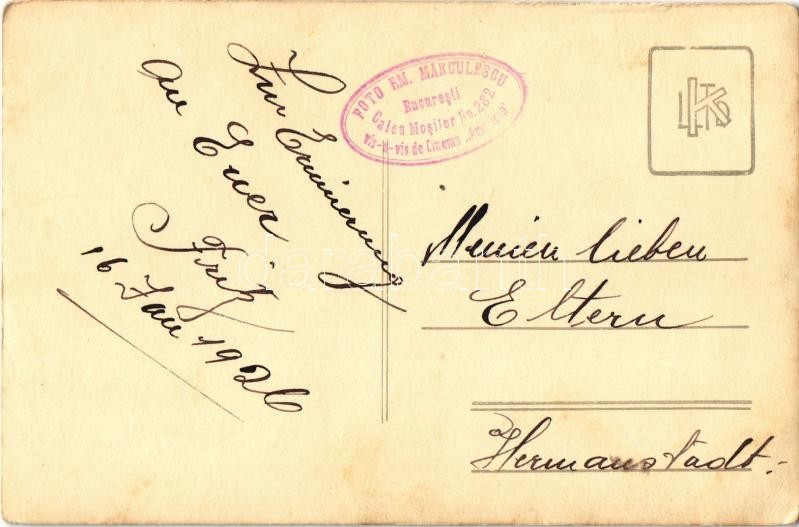 Zur Erinnerung
an Euer
Fritz
16 Jan 1926
FOTO EM. MARCULESCU
Bucureşti
Calea Moşilor No. 282
vis-a-vis de Cinema
LKS
Meinen lieben
Eltern
Hermannstadt.-
darabanth